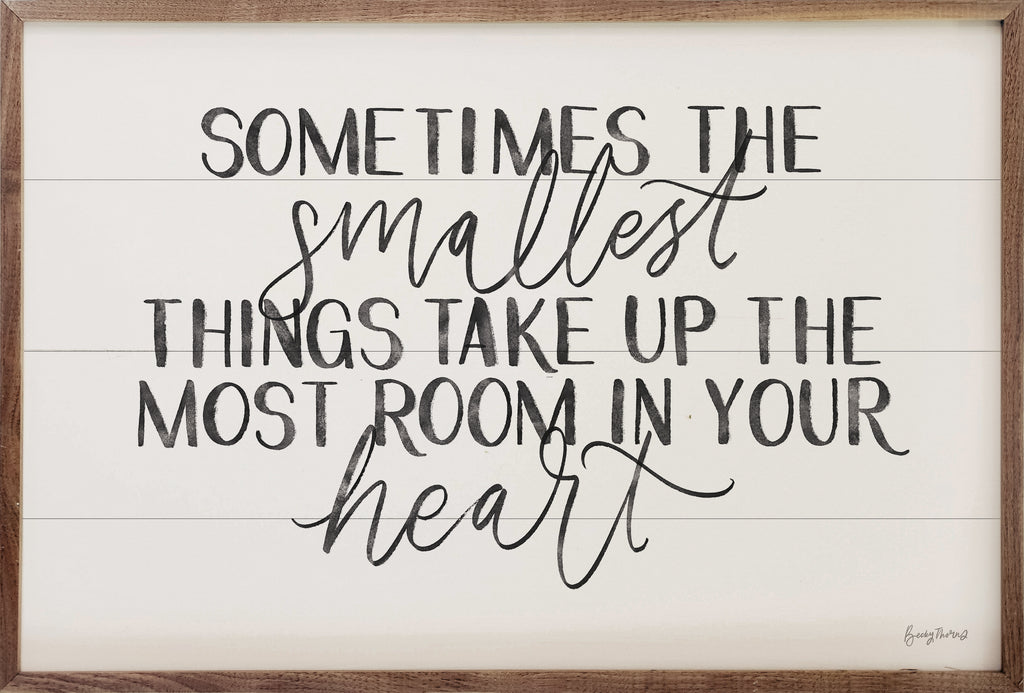 SOMETIMES THE
smallest
THINGS TAKE UP THE
MOST ROOM IN YOUR
heart
Becky Thorns